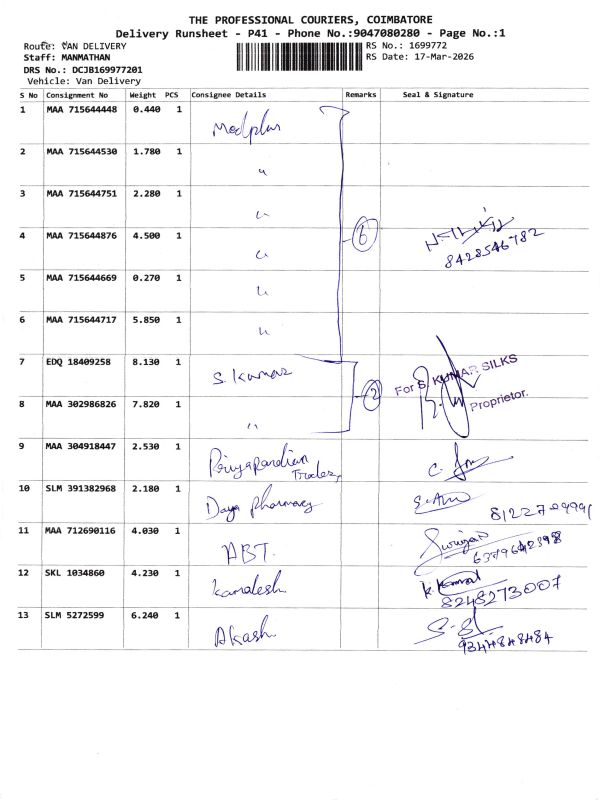 THE PROFESSIONAL COURIERS, COIMBATORE
Delivery Runsheet - P41 - Phone No.:9047080280 - Page No.:1
Route: VAN DELIVERY
RS No.: 1699772
Staff: MANMATHAN
RS Date: 17-Mar-2026
DRS No.: DCJB169977201
Vehicle: Van Delivery
S No Consignment No Weight PCS Consignee Details Remarks Seal & Signature
1 MAA 715644448 0.440 1 Medplus
2 MAA 715644530 1.780 1 "
3 MAA 715644751 2.280 1 "
4 MAA 715644876 4.500 1 " 6 8428546782
5 MAA 715644669 0.270 1 "
6 MAA 715644717 5.850 1 "
7 EDQ 18409258 8.130 1 S. Kumar For S. KUMAR SILKS
8 MAA 302986826 7.820 1 " 2 Proprietor.
9 MAA 304918447 2.530 1 Periyapandian Traders
10 SLM 391382968 2.180 1 Daya Pharmacy
11 MAA 712690116 4.030 1 ABT. 6379642398
12 SKL 1034860 4.230 1 Kamalesh 8248273007
13 SLM 5272599 6.240 1 Akash 9344848484